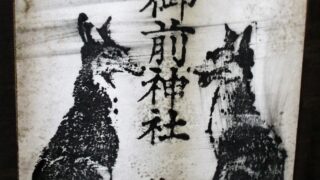 御前神社